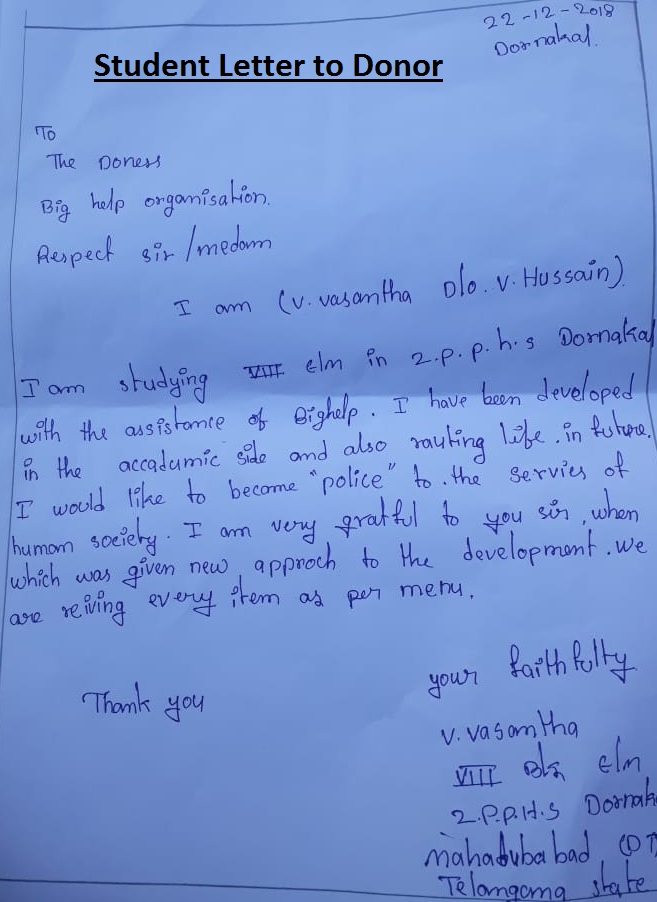 22-12-2018
Dornakal.
Student Letter to Donor
To
The Doness
Big help organisation.
Respect sir/medam
I am (v. vasantha D/o. v. Hussain)
I am studying VIII E/m in Z.p.p.h.s Dornakal
with the assistance of Bighelp. I have been developed
in the accadumic side and also rauting life. in future.
I would like to become "police" to. the servies of
human society. I am very gratful to you sir, when
which was given new approch to the development. we
are reiving every item as per menu.
Thank you
your faithfully
v. vasantha
VIII E/m
Z.P.P.H.S Dornak
Mahabubabad (DT
Telangana state